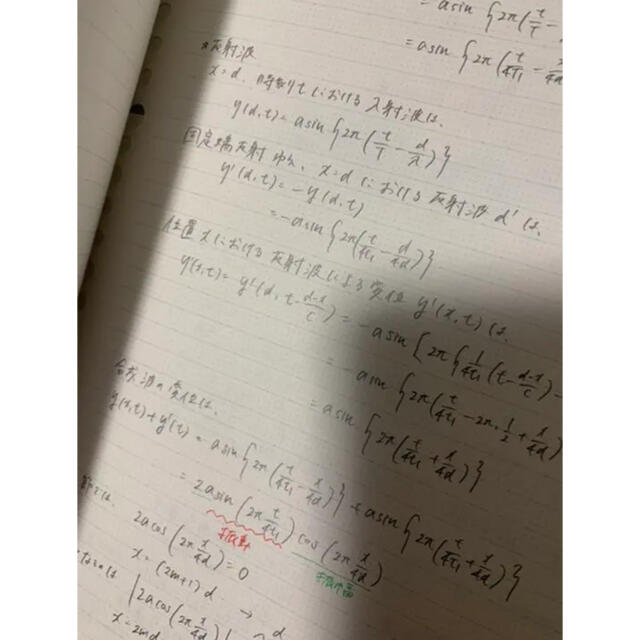 = a sin {2π(t/T -
= a sin {2π(t/4t₁ - x/4d
*反射波
x=d, 時刻tにおける入射波は、
y(d,t) = a sin {2π(t/T - d/λ)}
固定端反射ゆえ、x=dにおける反射波d'は、
y'(d,t) = -y(d,t)
= -a sin {2π(t/4t₁ - d/4d)}
位置xにおける反射波による変位y'(x,t)は、
y'(x,t) = y'(d, t - (d-x)/c) = -a sin [2π{1/4t₁(t - (d-x)/c) -
= -a sin {2π(t/4t₁ - 2π・1/2 + x/4d)
= a sin {2π(t/4t₁ + x/4d)}
合成波の変位は、
y(x,t) + y'(t) = a sin {2π(t/4t₁ - x/4d)} + a sin {2π(t/4t₁ + x/4d)}
= 2a sin (2π t/4t₁) cos (2π x/4d)
振動 振幅
節では、
2a cos (2π x/4d) = 0
x = (2m+1)d → d
|2a cos (2π x/4d)|
x = 2md